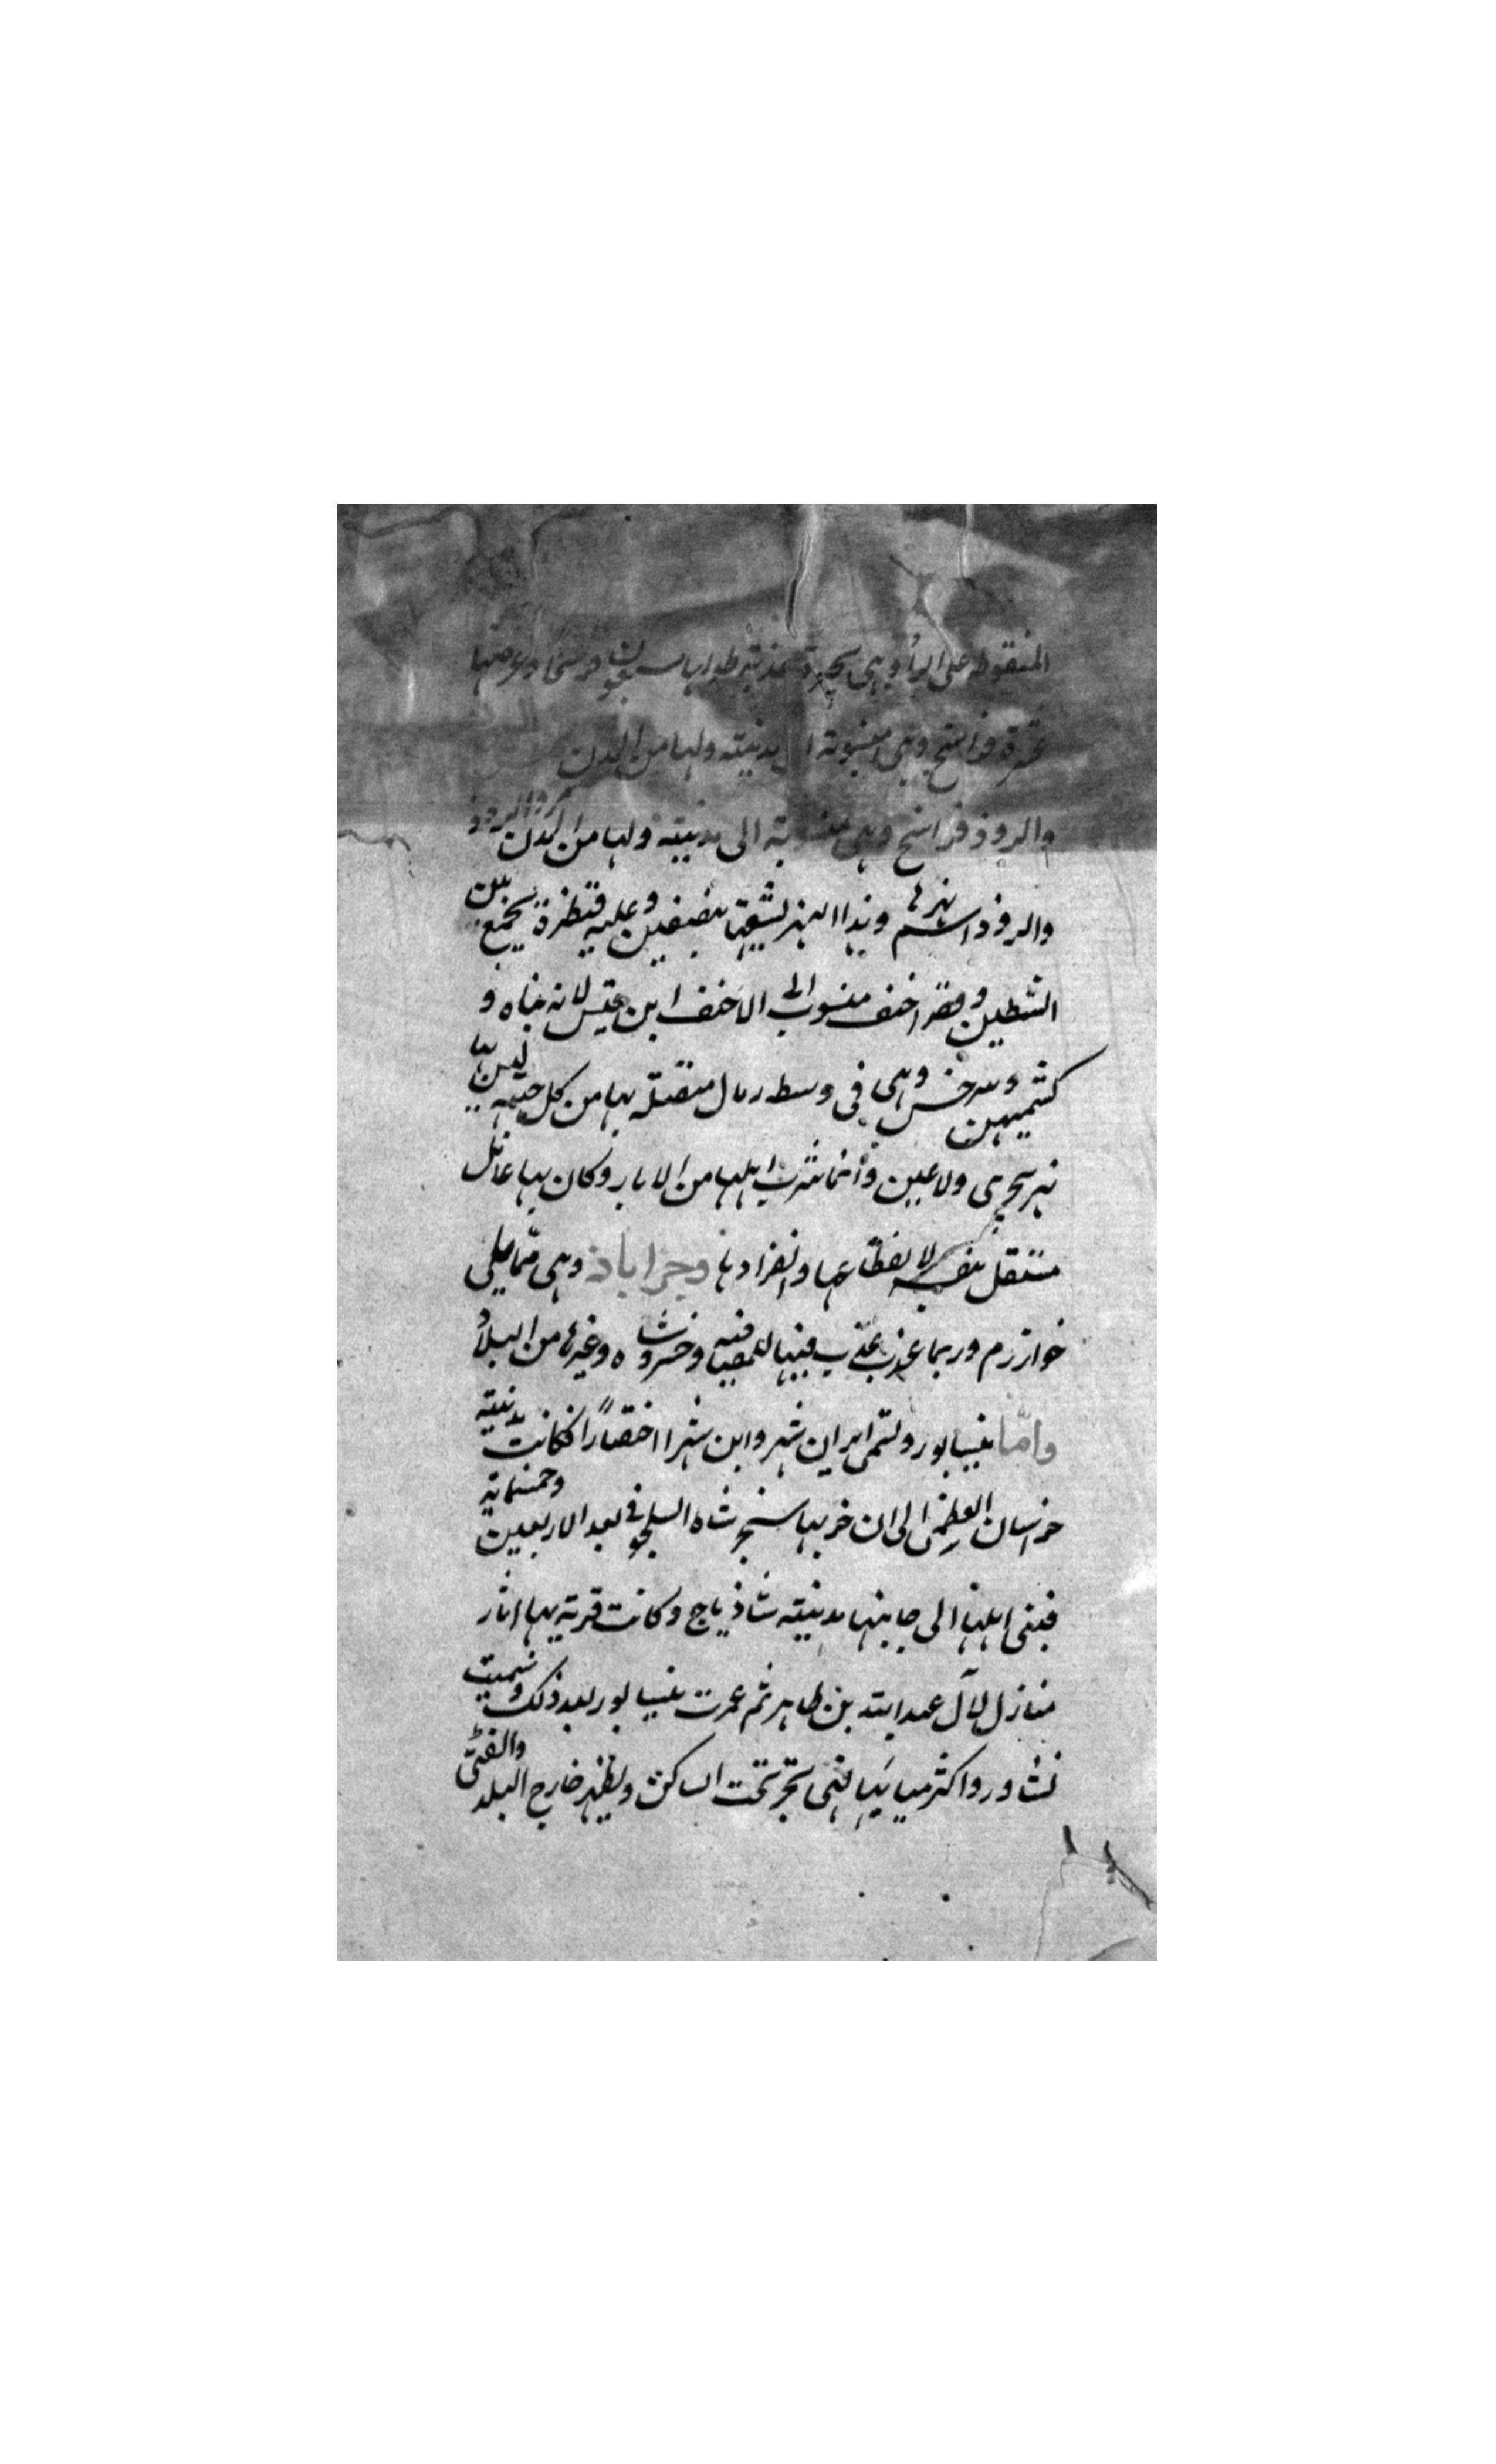 المنقوطة على الراء وهى بحيرة عذبة طولها سبعون فرسخًا وعرضها
عشرة فراسخ وهى منسوبة الى مدينة ولها من المدن
والروذ فراسخ وهى منسوبة الى مدينة ولها من المدن مرو الروذ
والروذ اسم نهرها وهذا النهر يشقها بنصفين وعليه قنطرة يجمع بين
الشطين وقصر احنف منسوب الى الاحنف ابن قيس لانه بناه و
كشميهن وسرخس وهى فى وسط رمال متصلة بها من كل جهة ليس بها
نهر يجرى ولا عين وانما شرب اهلها من الابار وكان بها عامل
مستقل بنفسه لانقطاعها وانفرادها وجراباذ وهى مما يلى
خوارزم وربما فيها وخسروشاه وغيرها من البلاد
وامّا نيسابور وتسمى ايران شهر وابن شهر اختصارًا فكانت مدينة
خراسان العظمى الى ان خربها سنجر شاه السلجوقى بعد الاربعين وخمسماية
فبنى اهلها الى جانبها مدينة شاذياج وكانت قرية بها اثار
منازل لآل عبد الله بن طاهر ثم عمرت نيسابور بعد ذلك وسميت
نشاور واكثر مياهها قنى تجرى تحت المساكن وتظهر خارج البلد والقنى